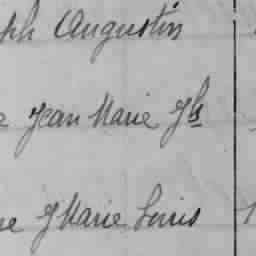 ph Augustin
Jean Marie Jh
Marie Louis